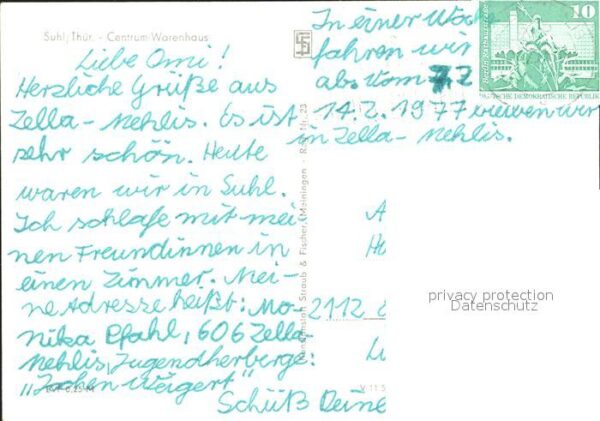 Suhl/Thür. - Centrum-Warenhaus
Liebe Omi!
Herzliche Grüße aus
Zella-Mehlis. Es ist
sehr schön. Heute
waren wir in Suhl.
Ich schlafe mit mei-
nen Freundinnen in
einen Zimmer. Mei-
ne Adresse heißt: Mo-
nika Pfahl, 606 Zella-
Mehlis, Jugendherberge:
"Jochen Weigert"
Schüß Deine
In einer Woc
fahren wir
ab. Vom 7.2
14.2.1977 bleiben wir
in Zella-Mehlis.
Straub & Fischer, Meiningen
2112
V 11 5
10
DEUTSCHE DEMOKRATISCHE REPUBLIK
privacy protection
Datenschutz